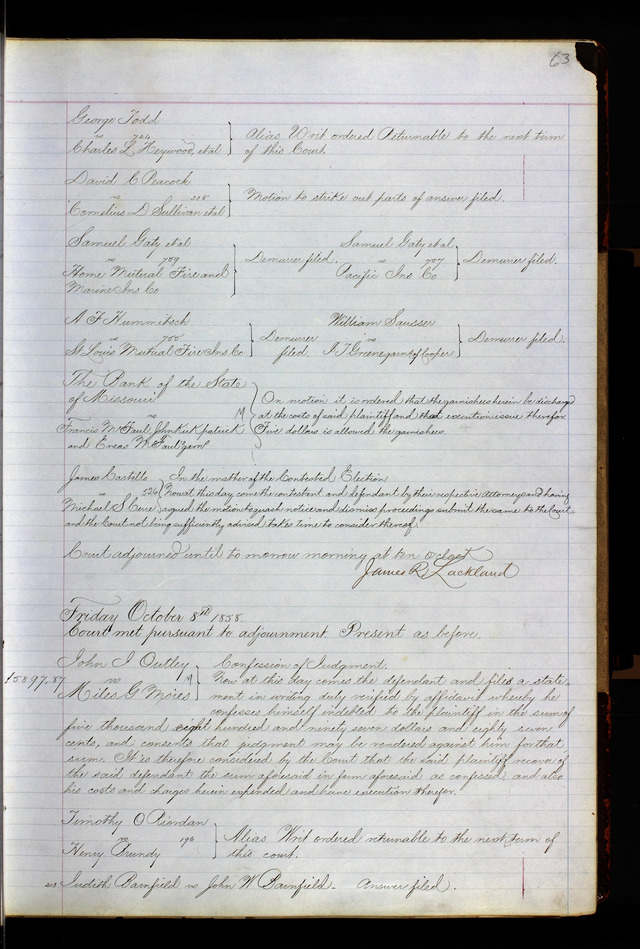 63
George Todd
vs 724
Charles L Heywood, et al } Alias Writ ordered Returnable to the next term
of this Court.
David C Peacock
vs
Cornelius D Sullivan et al } Motion to strike out parts of answer filed.
Samuel Gaty et al
vs 709
Home Mutual Fire and
Marine Ins Co } Demurrer filed.
Samuel Gaty et al
vs 707
Pacific Ins Co } Demurrer filed.
A F Hummitsch
vs 700
St Louis Mutual Fire Ins. Co } Demurrer
filed.
William Sausser
vs
I T Greene garn of Cooper } Demurrer filed.
The Bank of the State
of Missouri
vs M
Francis McFaul, John Kirkpatrick
and Eneas McFaul garns
On motion it is ordered that the garnishees herein be discharged
at the costs of said plaintiff and that execution issue therefor.
Five dollars is allowed the garnishees.
James Castello In the matter of the Contested Election
vs 526
Michael S Cerre } Now at this day come the contestant and defendant by their respective Attorneys and having
argued the motion to quash notice and dismiss proceedings submit the same to the Court
and the Court not being sufficiently advised takes time to consider thereof.
Court adjourned until to morrow morning at ten o clock
James R. Lackland
Friday October 8th 1858.
Court met pursuant to adjournment. Present as before.
John I Outley
vs M
Miles G Moies
Confession of Judgment.
$5897.87
Now at this day comes the defendant and files a state-
ment in writing duly verified by affidavit whereby he
confesses himself indebted to the plaintiff in the sum of
five thousand eight hundred and ninety seven dollars and eighty seven
cents, and consents that judgment may be rendered against him for that
sum. It is therefore considered by the Court that the said plaintiff recover of
the said defendant the sum aforesaid in form aforesaid as confessed, and also
his costs and charges herein expended and have execution therefor.
Timothy O Riordan
vs 190
Henry Grundy } Alias Writ ordered returnable to the next term of
this court.
Judith Bainfield vs John W Bainfield. Answer filed.